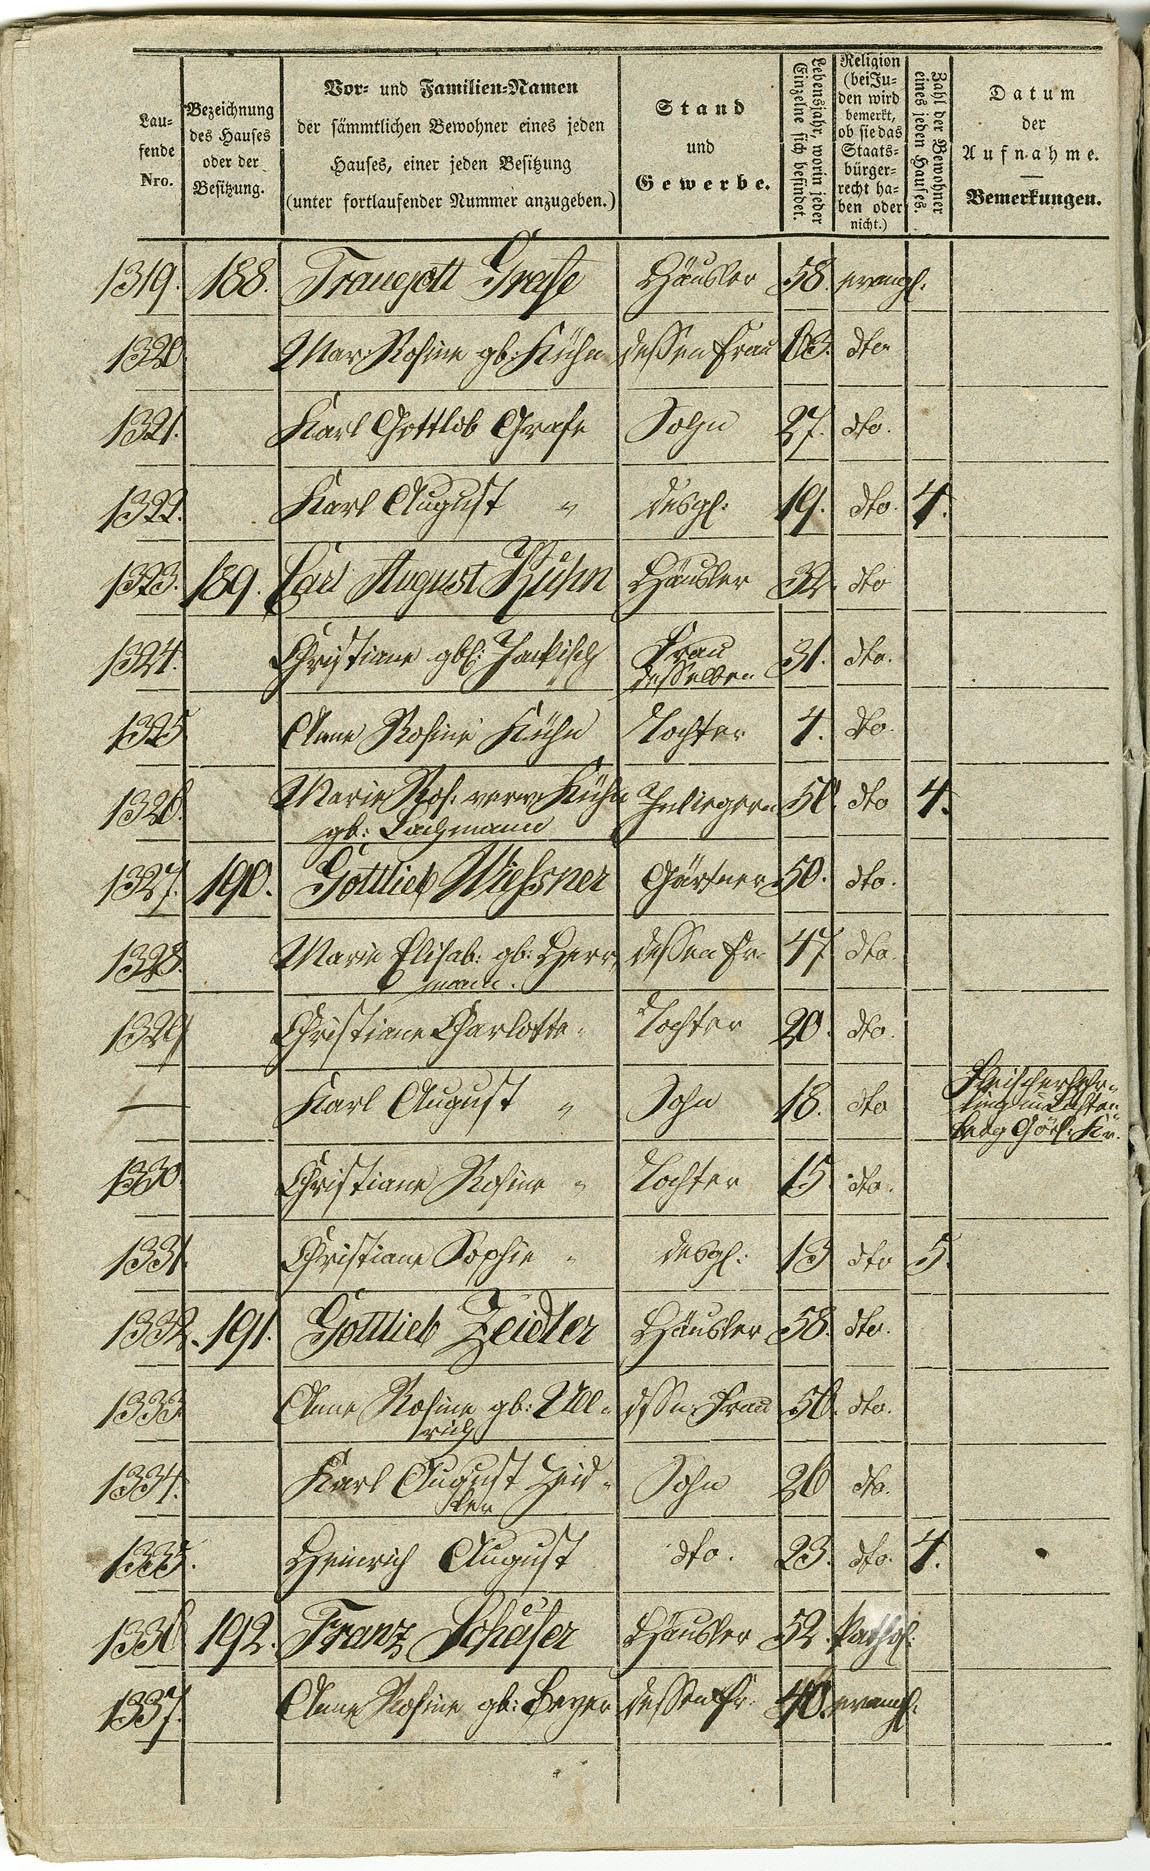 Lau-
fende
Nro.
Bezeichnung
des Hauses
oder der
Besitzung.
Vor- und Familien-Namen
der sämmtlichen Bewohner eines jeden
Hauses, einer jeden Besitzung
(unter fortlaufender Nummer anzugeben.)
Stand
und
Gewerbe.
Lebensjahr, worin jeder
Einzelne sich befindet.
Religion
(bei Ju-
den wird
bemerkt,
ob sie das
Staats-
bürger-
recht ha-
ben oder
nicht.)
Zahl der Bewohner
eines jeden Hauses.
Datum
der
Aufnahme.
Bemerkungen.
1319. 188. Traugott Grafe Häusler 58. evangl.
1320. Mar: Rosine gb: Kühn dessen Frau 63. dto
1321. Karl Gottlob Grafe Sohn 27. dto.
1322. Karl August " desgl: 19. dto. 4.
1323. 189. Carl August Kühn Häusler 32. dto
1324. Christiane gb: Frau
desselben 31. dto.
1325 Anne Rosine Kühn Tochter 4. dto.
1326. Marie Ros: verw: Kühn Inliegerin 56. dto 4.
gb: Lachmann
1327. 190. Gottlieb Wießner Gärtner 50. dto.
1328. Marie Elisab: gb: Herr dessen Fr. 47 dto.
mann.
1329 Christiane Charlotte " Tochter 20. dto.
— Karl August " Sohn 18. dto Fleischerlehr-
ling in
berg Görl: Kr.
1330. Christiane Rosine " Tochter 15. dto.
1331. Christiane Sophie " desgl: 13 dto 5.
1332. 191. Gottlieb Zeidler Häusler 58. dto.
1333 Anne Rosine gb: Ull- dssn: Frau 56. dto.
rich
1334. Karl August Zeid- Sohn 26 dto.
ler
1335. Heinrich August dto. 23. dto. 4.
1336 192. Franz Schäfer Häusler 52. kathol:
1337. Anne Rosine gb: Beyer dessen Fr. 40. evangl.